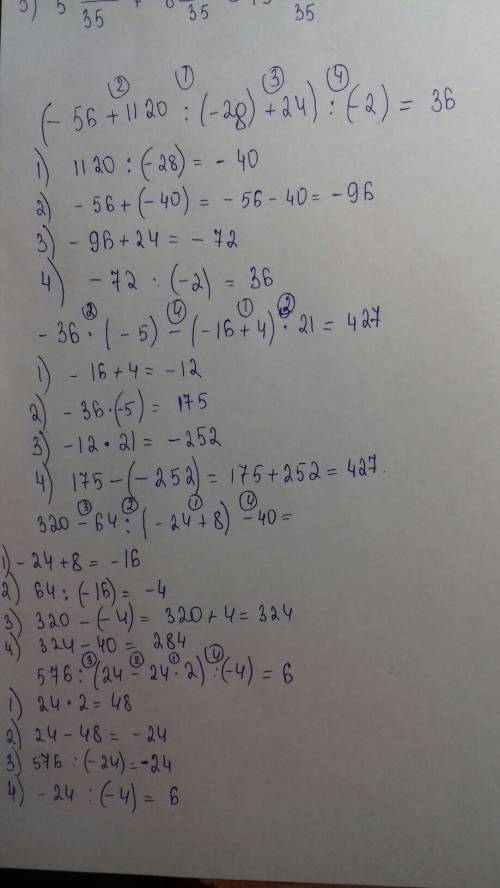 5) 5 /35 + 8 /35 /35
② ① ③ ④
(- 56 + 1120 : (-28) + 24) : (-2) = 36
1) 1120 : (-28) = - 40
2) - 56 + (-40) = - 56 - 40 = - 96
3) - 96 + 24 = - 72
4) - 72 : (-2) = 36
② ④ ① ②
- 36 · (-5) - (-16 + 4) · 21 = 427
1) - 16 + 4 = - 12
2) - 36 · (-5) = 175
3) - 12 · 21 = - 252
4) 175 - (- 252) = 175 + 252 = 427.
③ ② ① ④
320 - 64 : (- 24 + 8) - 40 =
1) - 24 + 8 = - 16
2) 64 : (-16) = - 4
3) 320 - (-4) = 320 + 4 = 324
4) 324 - 40 = 284
③ ② ① ④
576 : (24 - 24 · 2) : (-4) = 6
1) 24 · 2 = 48
2) 24 - 48 = - 24
3) 576 : (-24) = -24
4) - 24 : (-4) = 6